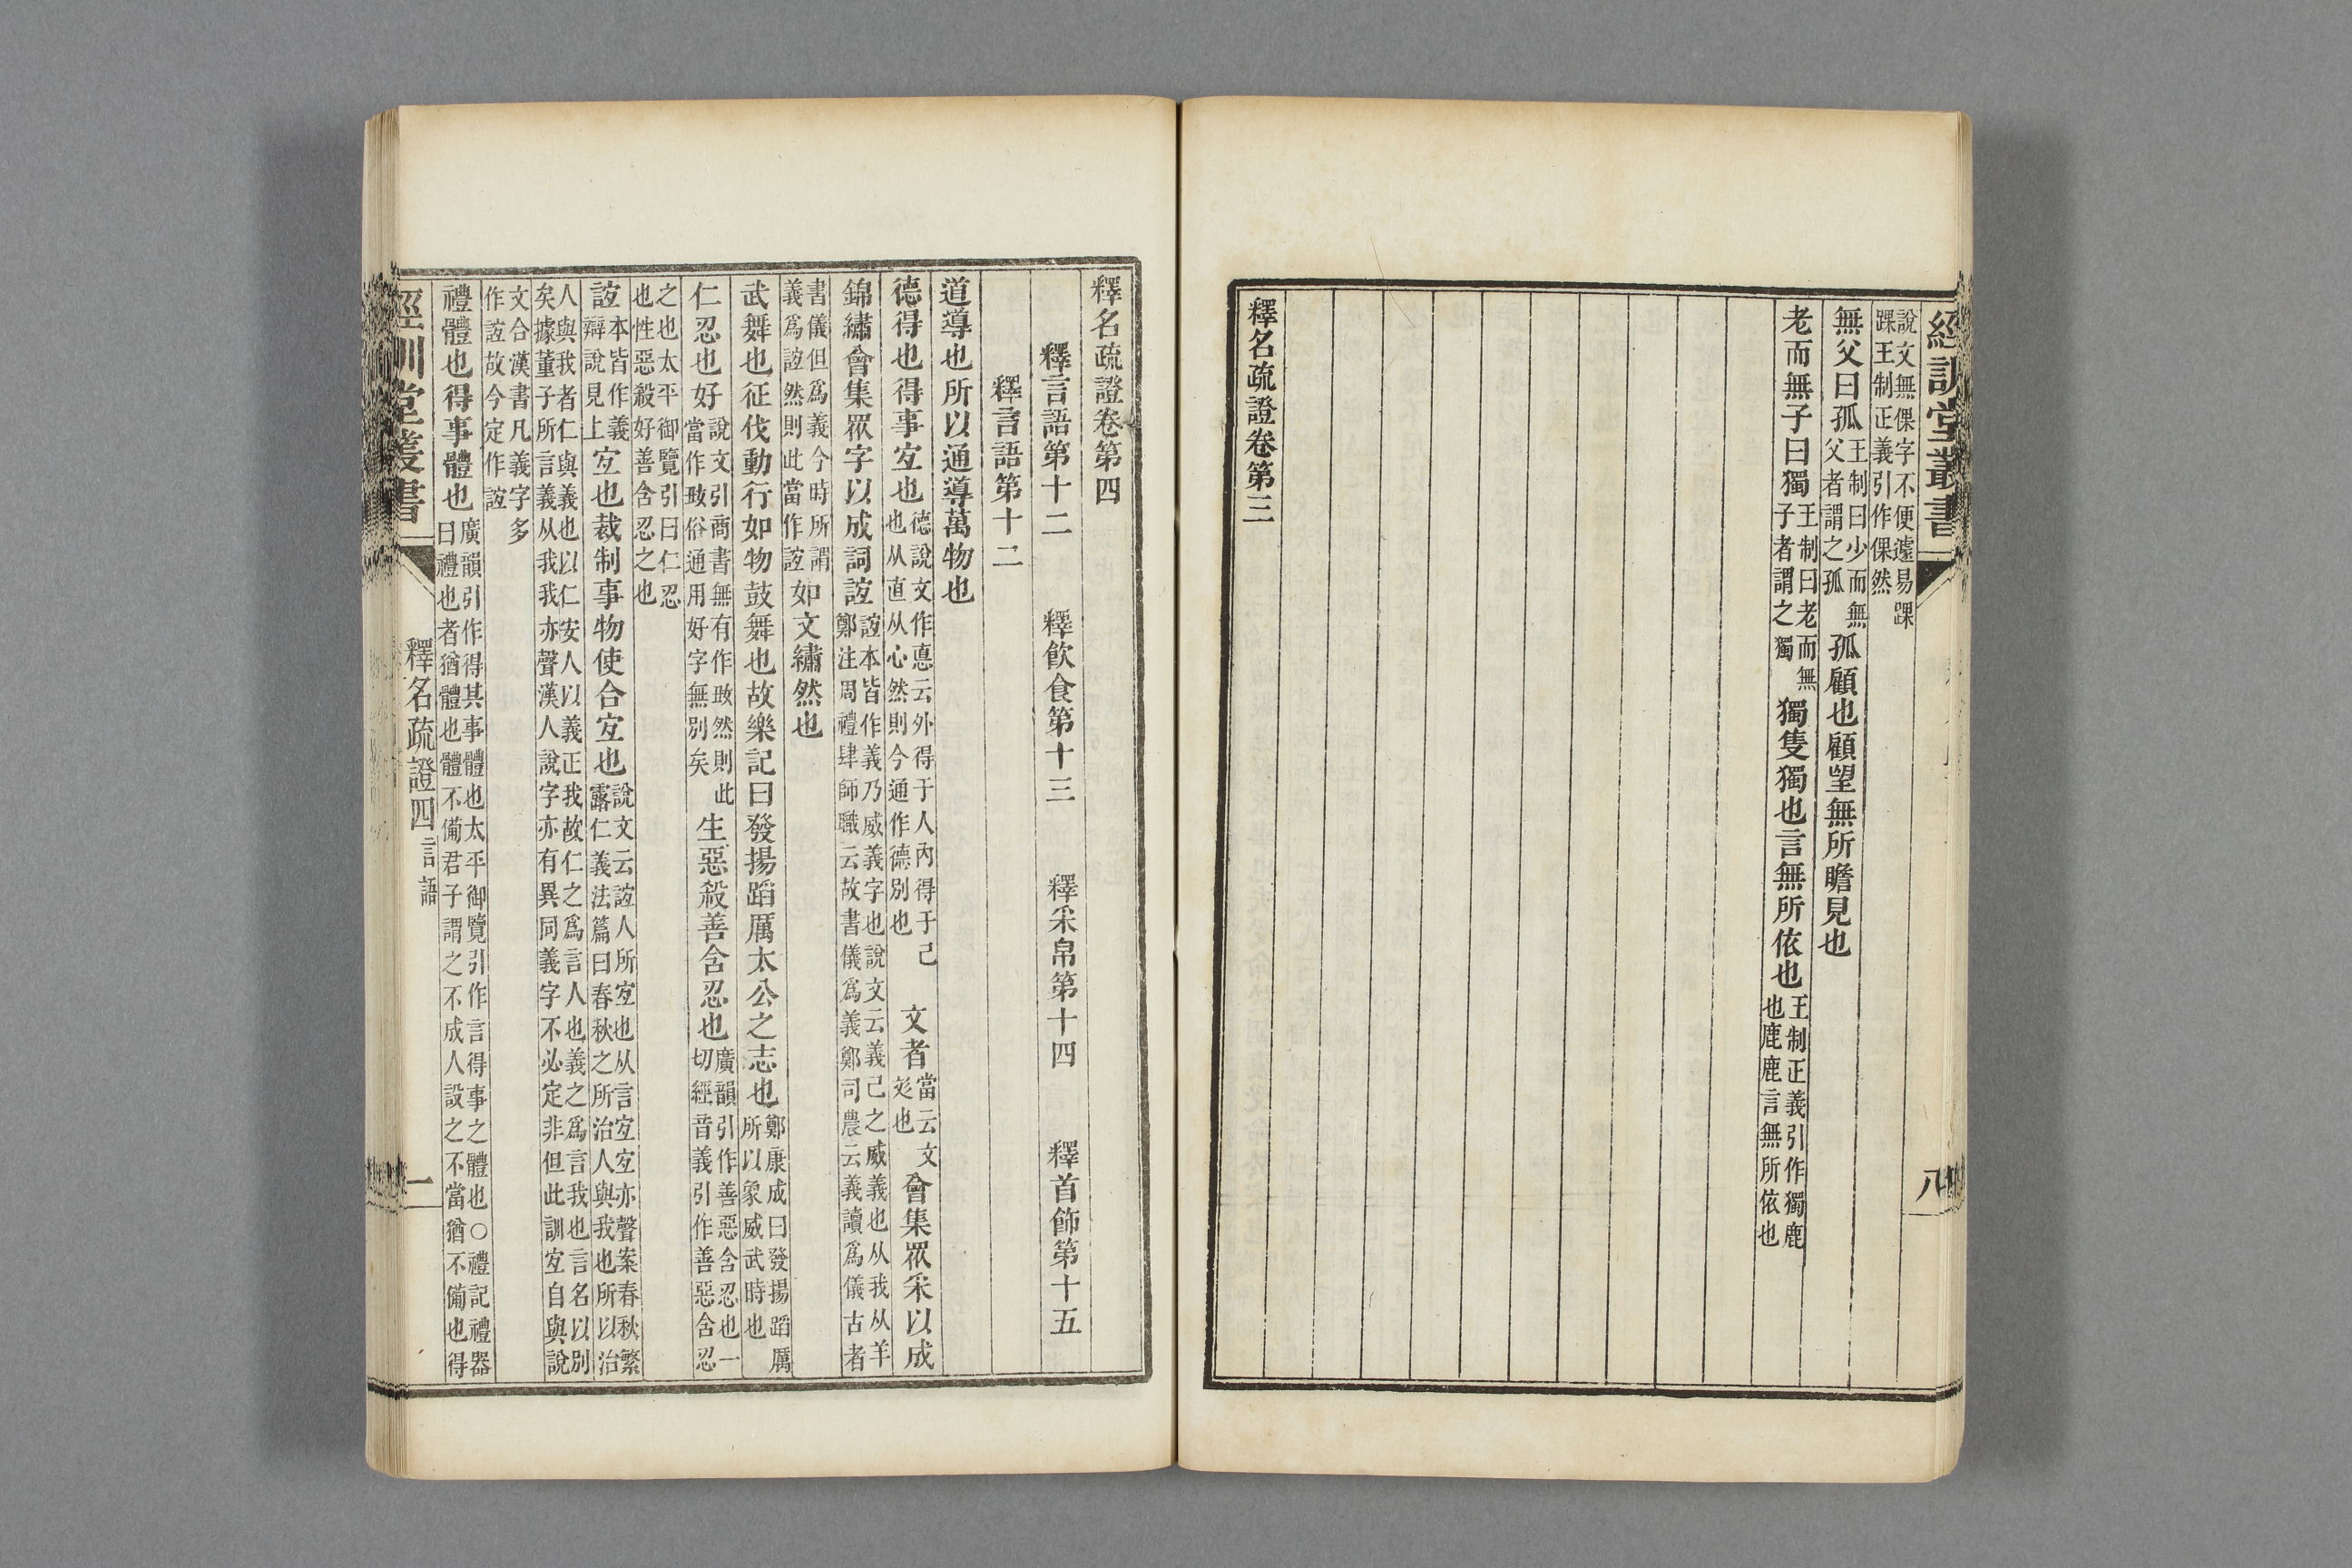 經訓堂叢書
八
說文無倮字不便遽易踝
踝王制正義引作倮然
無父曰孤王制曰少而無父者謂之孤孤顧也顧望無所瞻見也
老而無子曰獨王制曰老而無子者謂之獨獨隻獨也言無所依也王制正義引作獨鹿也鹿鹿言無所依也
釋名疏證卷第三
釋名疏證卷第四
釋言語第十二 釋飲食第十三 釋采帛第十四 釋首飾第十五
釋言語第十二
道導也所以通導萬物也
德得也得事宐也德說文作悳云外得于人內得于己也从直从心然則今通作德別也文者當云文彣也會集眾采以成
錦繡會集眾字以成詞誼誼本皆作義乃威義字也說文云義己之威義也从我从羊鄭注周禮肆師職云故書儀爲義鄭司農云義讀爲儀古者
書儀但爲義今時所謂義爲誼然則此當作誼如文繡然也
武舞也征伐動行如物鼓舞也故樂記曰發揚蹈厲太公之志也鄭康成曰發揚蹈厲所以象威武時也
仁忍也好說文引商書無有作㚥然則此當作㚥俗通用好字無別矣生惡殺善含忍也廣韻引作善惡含忍也一切經音義引作善惡含忍
之也太平御覽引曰仁忍也性惡殺好善含忍之也
誼本皆作義辯說見上宐也裁制事物使合宐也說文云誼人所宐也从言宐宐亦聲案春秋繁露仁義法篇曰春秋之所治人與我也所以治
人與我者仁與義也以仁安人以義正我故仁之爲言人也義之爲言我也言名以別矣據董子所言義从我我亦聲漢人說字亦有異同義字不必定非但此訓宐自與說
文合漢書凡義字多作誼故今定作誼
禮體也得事體也廣韻引作得其事體也太平御覽引作言得事之體也○禮記禮器曰禮也者猶體也體不備君子謂之不成人設之不當猶不備也得
經訓堂叢書
釋名疏證四言語
一